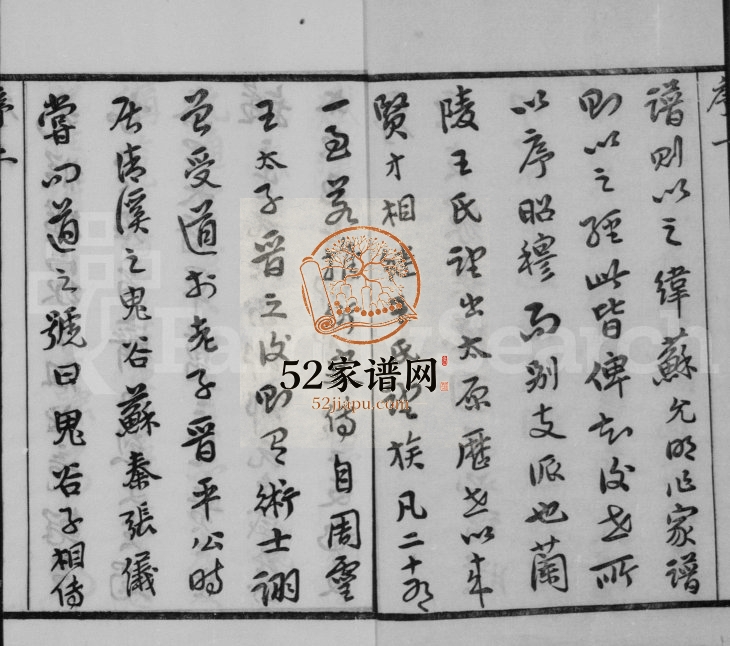 序一
譜則以之緯蘇允明作家譜
則以之經此皆俾知後世所
以序昭穆而别支派也蘭
陵王氏望出太原歷世以來
賢才相繼王氏望族凡二十有
一 傳自周靈
王太子晉之後則有術士詡
曾受道於老子晉平公時
居清溪之鬼谷蘇秦張儀
嘗问道之號曰鬼谷子相傳
序二
52家谱网
52jiapu.com
FamilySearch